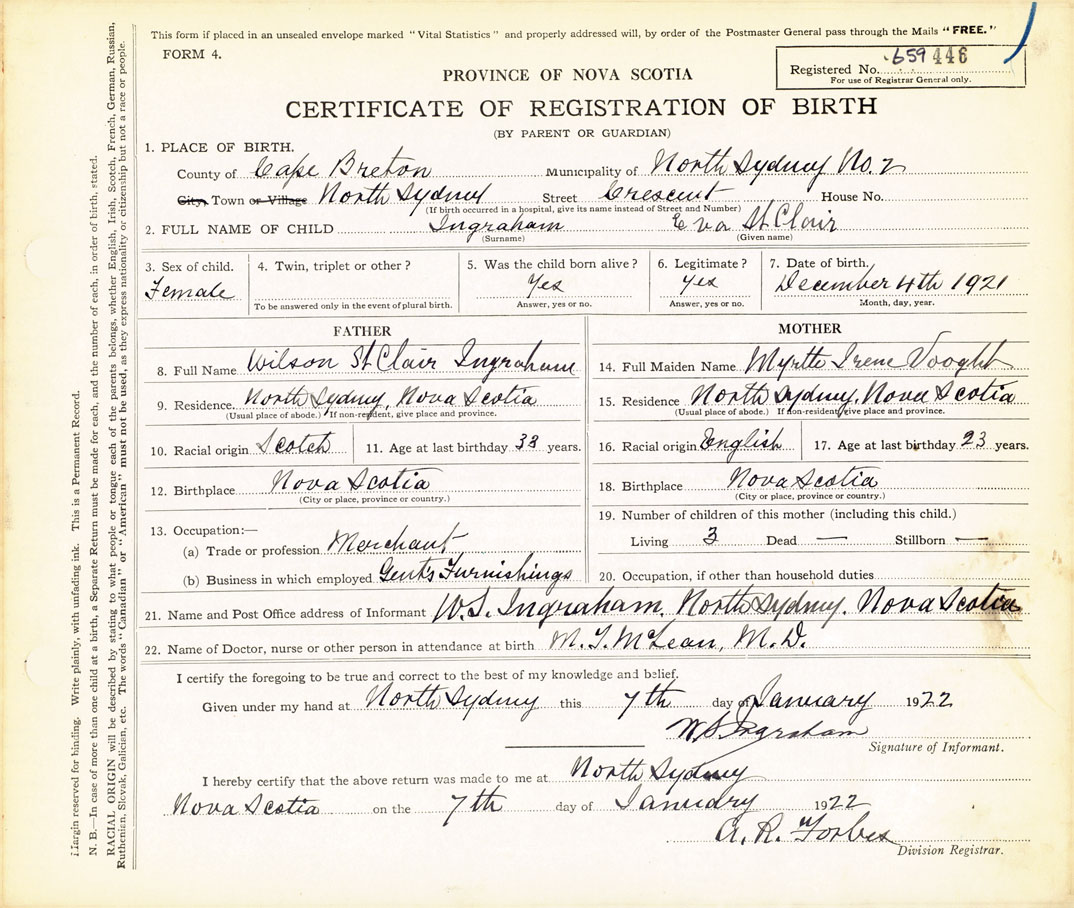 This form if placed in an unsealed envelope marked "Vital Statistics" and properly addressed will, by order of the Postmaster General pass through the Mails "FREE."
FORM 4.
Registered No. 659 446
For use of Registrar General only.
PROVINCE OF NOVA SCOTIA
CERTIFICATE OF REGISTRATION OF BIRTH
(BY PARENT OR GUARDIAN)
1. PLACE OF BIRTH.
County of Cape Breton Municipality of North Sydney No. 2
City, Town or Village North Sydney Street Crescent House No.
(If birth occurred in a hospital, give its name instead of Street and Number)
2. FULL NAME OF CHILD Ingraham Eva St Clair
(Surname) (Given name)
3. Sex of child. 4. Twin, triplet or other? 5. Was the child born alive? 6. Legitimate? 7. Date of birth.
Female Yes Yes December 4th 1921
To be answered only in the event of plural birth. Answer, yes or no. Answer, yes or no. Month, day, year.
FATHER
8. Full Name Wilson St Clair Ingraham
9. Residence North Sydney, Nova Scotia
(Usual place of abode.) If non-resident, give place and province.
10. Racial origin Scotch 11. Age at last birthday 38 years.
12. Birthplace Nova Scotia
(City or place, province or country.)
13. Occupation:—
(a) Trade or profession Merchant
(b) Business in which employed Gents Furnishings
MOTHER
14. Full Maiden Name Myrtle Irene Vooght
15. Residence North Sydney, Nova Scotia
(Usual place of abode.) If non-resident, give place and province.
16. Racial origin English 17. Age at last birthday 23 years.
18. Birthplace Nova Scotia
(City or place, province or country.)
19. Number of children of this mother (including this child.)
Living 3 Dead — Stillborn —
20. Occupation, if other than household duties
21. Name and Post Office address of Informant W. S. Ingraham, North Sydney, Nova Scotia
22. Name of Doctor, nurse or other person in attendance at birth M. T. McLean, M. D.
I certify the foregoing to be true and correct to the best of my knowledge and belief.
Given under my hand at North Sydney this 7th day of January 1922
W S Ingraham
Signature of Informant.
I hereby certify that the above return was made to me at North Sydney
Nova Scotia on the 7th day of January 1922
A. R. Forbes
Division Registrar.
Margin reserved for binding. Write plainly, with unfading ink. This is a Permanent Record.
N. B.—In case of more than one child at a birth, a Separate Return must be made for each, and the number of each, in order of birth, stated.
RACIAL ORIGIN will be described by stating to what people or tongue each of the parents belongs, whether English, Irish, Scotch, French, German, Russian,
Ruthenian, Slovak, Galician, etc. The words "Canadian" or "American" must not be used, as they express nationality or citizenship but not a race or people.